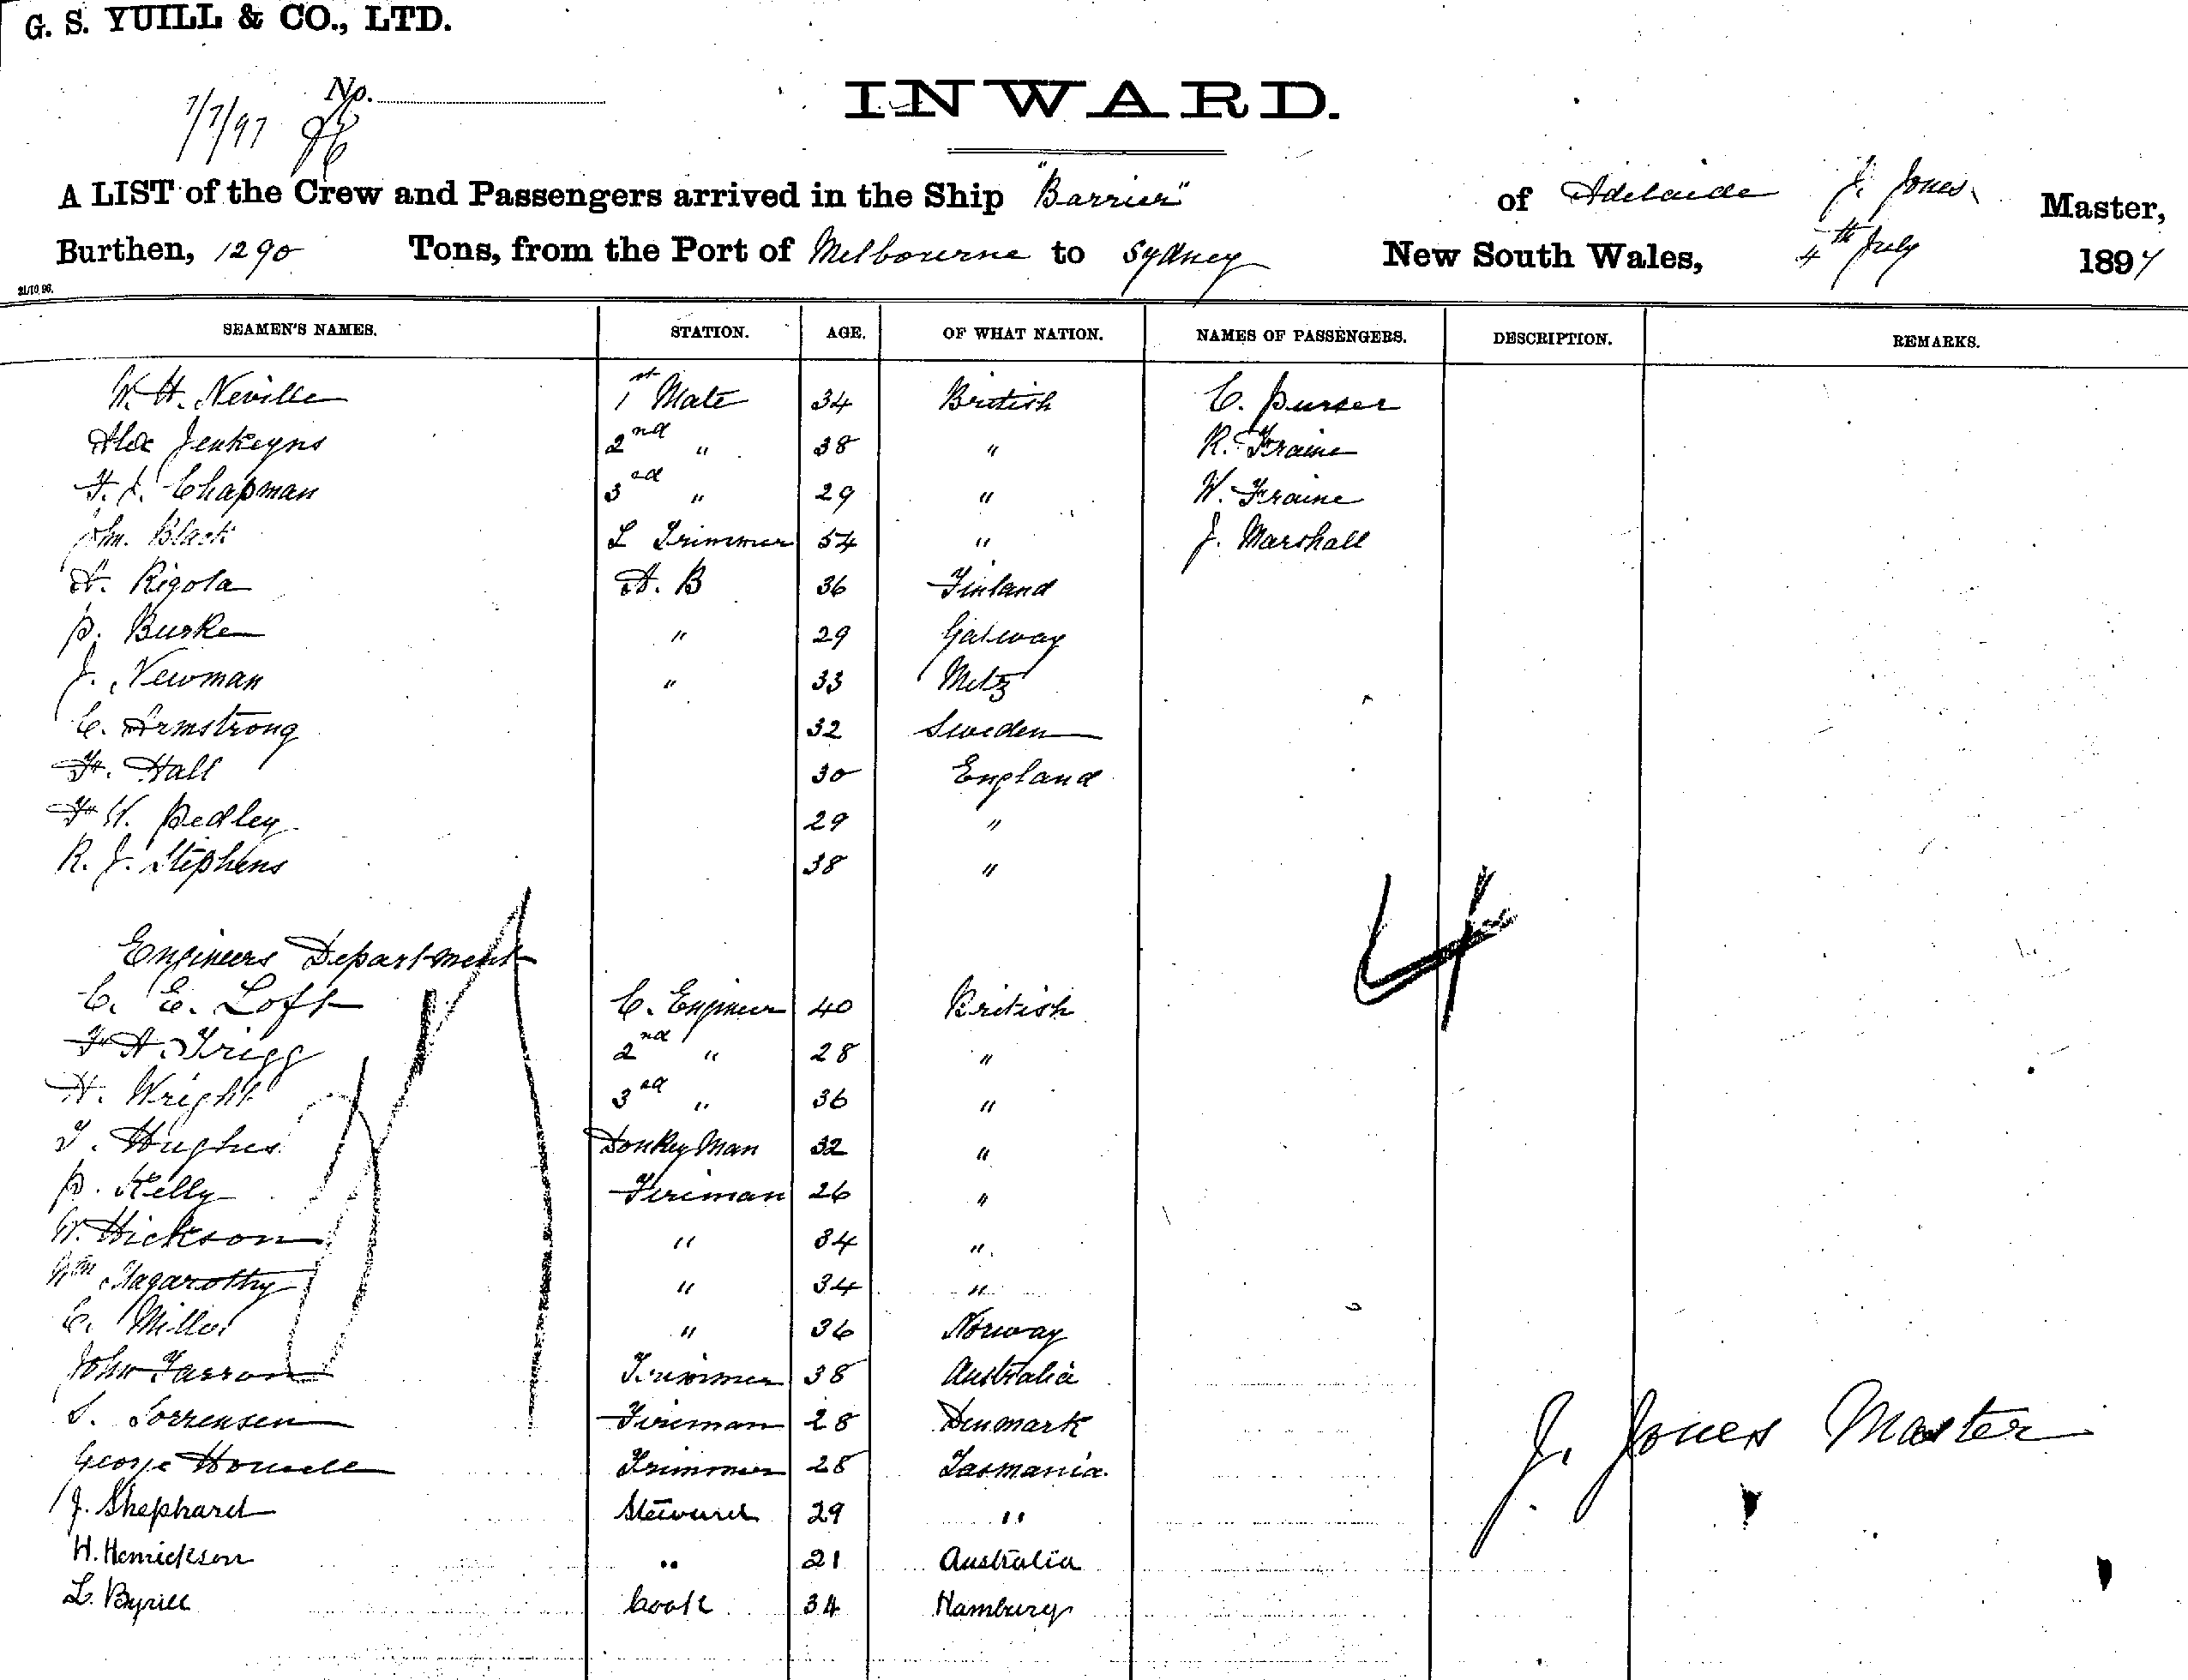 G. S. YUILL & CO., LTD.
No.
7/7/97
INWARD.
A LIST of the Crew and Passengers arrived in the Ship "Barrier" of Adelaide J. Jones Master,
Burthen, 1290 Tons, from the Port of Melbourne to Sydney New South Wales, 4th July 1897
21/10.96.
SEAMEN'S NAMES. STATION. AGE. OF WHAT NATION. NAMES OF PASSENGERS. DESCRIPTION. REMARKS.
W. H. Neville 1st Mate 34 British C. Purser
Alex Jenkeyns 2nd " 38 " R. Fraine
F. J. Chapman 3rd " 29 " W. Fraine
Jhn. Black L Trimmer 54 " J. Marshall
A. Rigola A. B 36 Finland
P. Burke " 29 Galway
J. Newman " 33 Metz
C. Armstrong 32 Sweden
F. Hall 30 England
F W. Pedley 29 "
R. J. Stephens 38 "
4
Engineers Department
C. E. Loft C. Engineer 40 British
F A. Trigg 2nd " 28 "
H. Wright 3rd " 36 "
T. Hughes Donkey Man 32 "
P. Kelly Fireman 26 "
W. Hickson " 34 "
Wm " 34 "
C. Miller " 36 Norway
John Farron Trimmer 38 Australia
S. Sorrensen Fireman 28 Denmark
J. Jones Master
George Howell Trimmer 28 Tasmania
J. Shephard Steward 29 "
H. Henrickson " 21 Australia
L. Byrill Cook 34 Hamburg